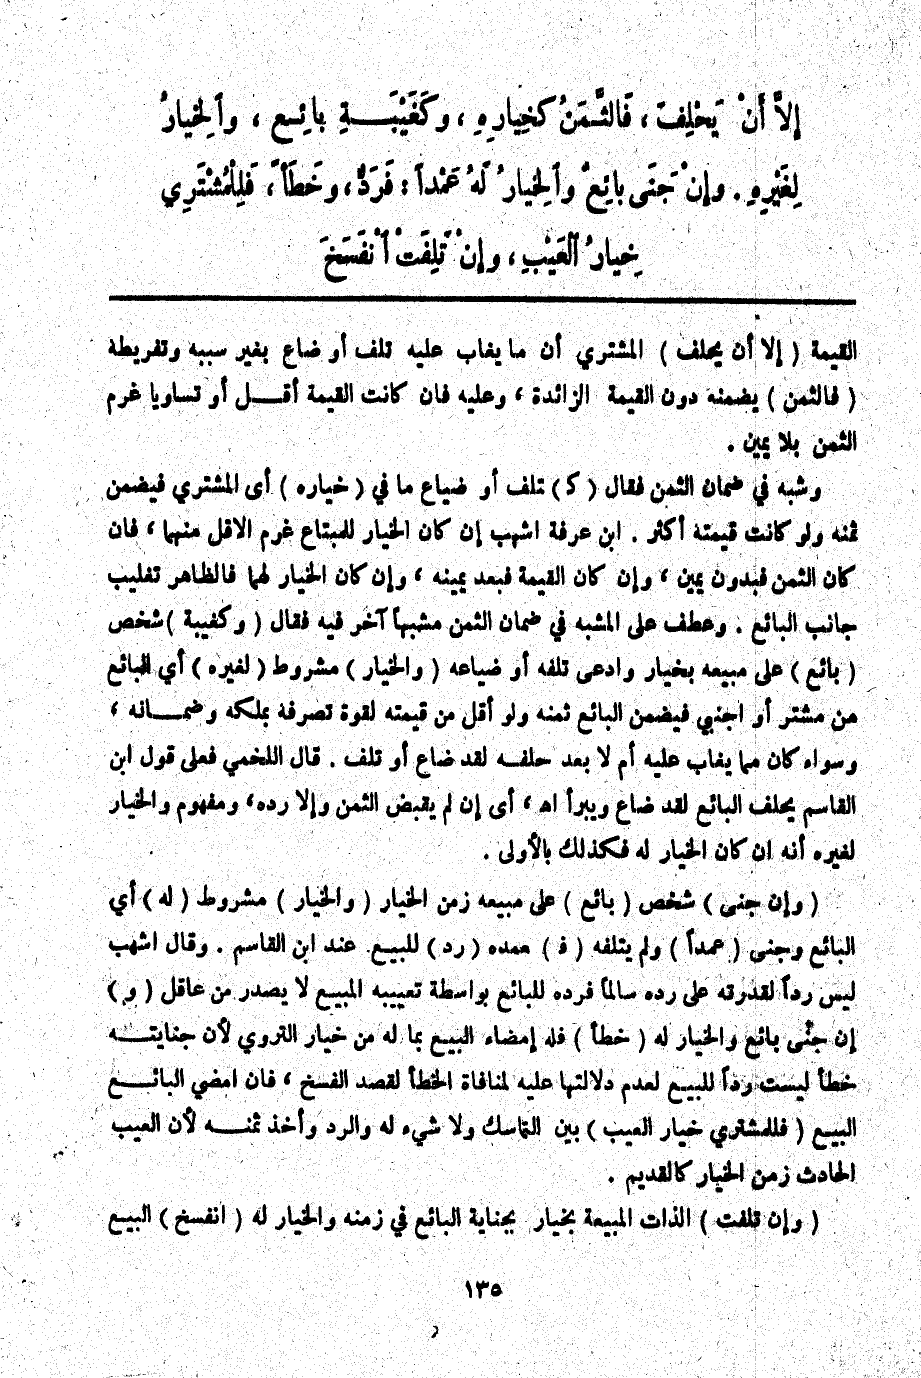 إِلاَّ أَنْ يَحْلِفَ ، فَالثَّمَنُ كَخِيارِهِ ، وكَغَيْبَـــةِ بائِعٍ ، وألخِيارُ
لِغَيْرِهِ . وإنْ جَنَى بائِعٌ وألخِيارُ لَهُ عَمْداً : فَرَدٌّ ، وخَطَأً ، فَلِلْمُشْتَرِي
خِيارُ ألْعَيْبِ ، وإنْ تَلِفَتْ أنْفَسَخَ
القيمة ( إلا أن يحلف ) المشتري أن ما يغاب عليه تلف أو ضاع بغير سببه وتفريطة
( فالثمن ) يضمنه دون القيمة الزائدة ، وعليه فان كانت القيمة أقـــل أو تساويا غرم
الثمن بلا يمين .
وشبه في ضمان الثمن فقال ( كـ ) تلف أو ضياع ما في ( خياره ) أى المشتري فيضمن
ثمنه ولو كانت قيمته أكثر . ابن عرفة اشهب إن كان الخيار للمبتاع غرم الاقل منهما ، فان
كان الثمن فبدون يمين ، وإن كان القيمة فبعد يمينه ، وإن كان الخيار لهما فالظاهر تغليب
جانب البائع . وعطف على المشبه في ضمان الثمن مشبهاً آخر فيه فقال ( وكغيبة ) شخص
( بائع ) على مبيعه بخيار وادعى تلفه أو ضياعه ( والخيار ) مشروط ( لغيره ) أي البائع
من مشتر أو اجنبي فيضمن البائع ثمنه ولو أقل من قيمته لقوة تصرفه بملكه وضمـــانه ،
وسواء كان مما يغاب عليه أم لا بعد حلفـه لقد ضاع أو تلف . قال اللخمي فعلى قول ابن
القاسم يحلف البائع لقد ضاع ويبرأ اه ، أى إن لم يقبض الثمن وإلا رده ، ومفهوم والخيار
لغيره أنه ان كان الخيار له فكذلك بالأولى .
( وإن جنى ) شخص ( بائع ) على مبيعه زمن الخيار ( والخيار ) مشروط ( له ) أي
البائع وجنى ( عمداً ) ولم يتلفه ( فـ ) عمده ( رد ) للبيـع عند ابن القاسم . وقال اشهب
ليس رداً لقدرته على رده سالماً فرده للبائع بواسطة تعييبه المبيـع لا يصدر من عاقل ( و )
إن جنى بائع والخيار له ( خطأ ) فله إمضاء البيـع بما له من خيار التروي لأن جنايتـــه
خطأ ليست رداً للبيـع لعدم دلالتها عليه لمنافاة الخطأ لقصد الفسخ ، فان امضي البائـــع
البيـع ( فللمشتري خيار العيب ) بين التماسك ولا شيء له والرد وأخذ ثمنـــه لأن العيب
الحادث زمن الخيار كالقديم .
( وإن تلفت ) الذات المبيعة بخيار بجناية البائع في زمنه والخيار له ( انفسخ ) البيـع
١٣٥